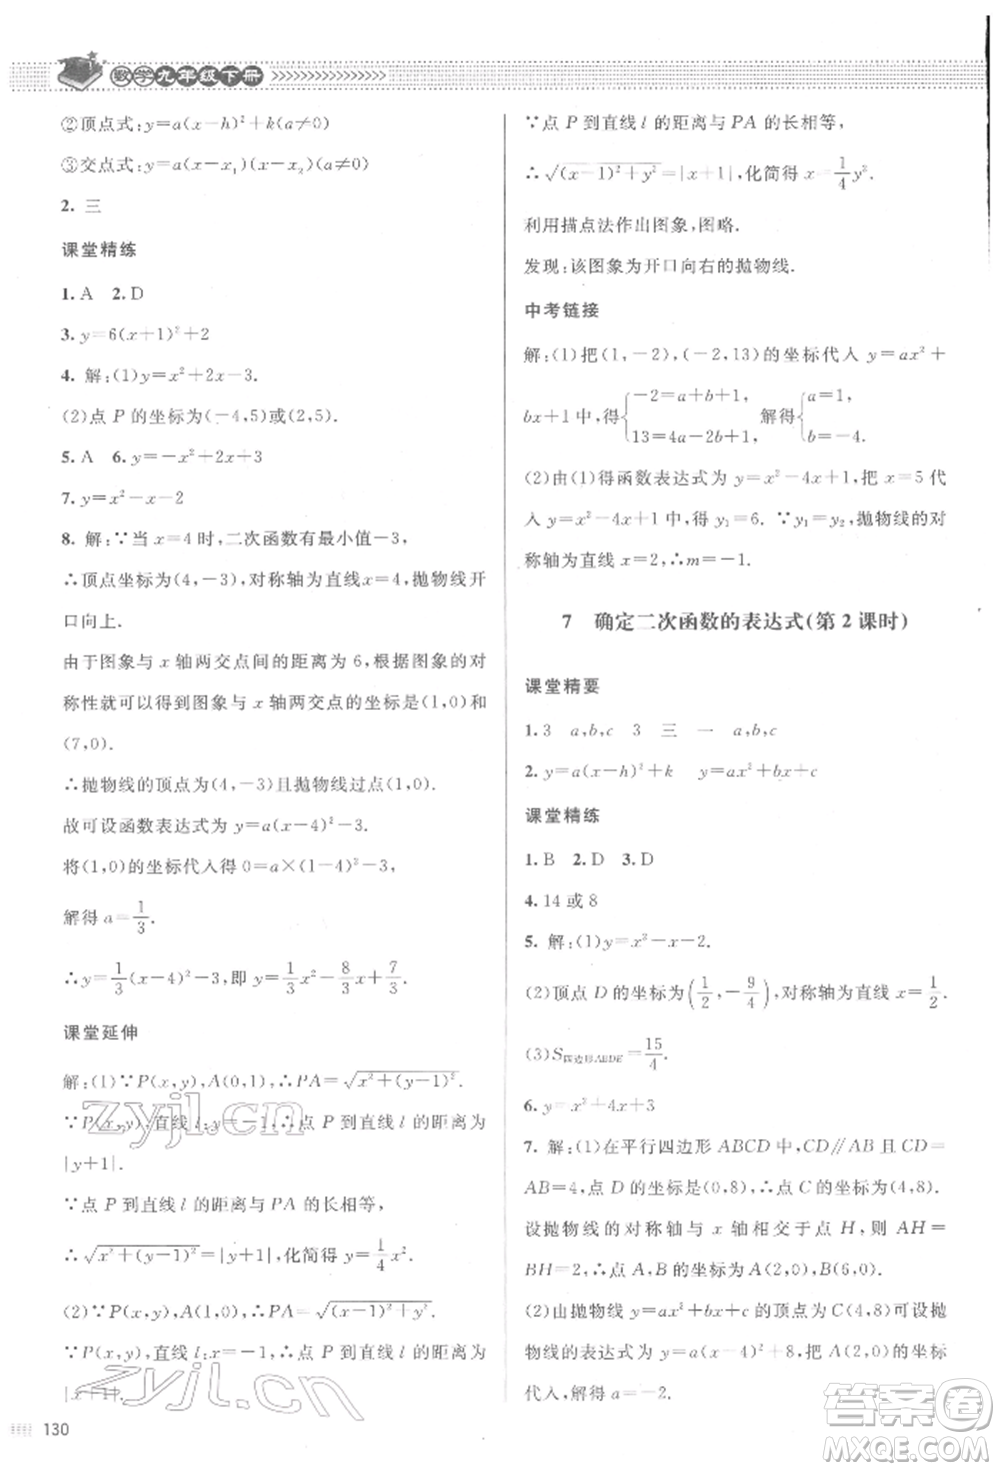 数学九年级下册
②顶点式:y=a(x-h)²+k(a≠0)
③交点式:y=a(x-x₁)(x-x₂)(a≠0)
2. 三
课堂精练
1. A 2. D
3. y=6(x+1)²+2
4. 解:(1)y=x²+2x-3.
(2)点 P 的坐标为(-4,5)或(2,5).
5. A 6. y=-x²+2x+3
7. y=x²-x-2
8. 解:∵当 x=4 时,二次函数有最小值-3,
∴顶点坐标为(4,-3),对称轴为直线x=4,抛物线开
口向上.
由于图象与 x 轴两交点间的距离为 6,根据图象的对
称性就可以得到图象与 x 轴两交点的坐标是(1,0)和
(7,0).
∴抛物线的顶点为(4,-3)且抛物线过点(1,0).
故可设函数表达式为 y=a(x-4)²-3.
将(1,0)的坐标代入得 0=a×(1-4)²-3,
解得 a=1/3.
∴y=1/3(x-4)²-3,即 y=1/3x²-8/3x+7/3.
课堂延伸
解:(1)∵P(x,y),A(0,1),∴PA=√(x²+(y-1)²).
∵P(x,y),直线 l:y=-1,∴点 P 到直线 l 的距离为
|y+1|.
∵点 P 到直线 l 的距离与 PA 的长相等,
∴√(x²+(y-1)²)=|y+1|,化简得 y=1/4x².
(2)∵P(x,y),A(1,0),∴PA=√((x-1)²+y²).
∵P(x,y),直线 l:x=-1,∴点 P 到直线 l 的距离为
|x+1|.
130
∵点 P 到直线 l 的距离与 PA 的长相等,
∴√((x-1)²+y²)=|x+1|,化简得 x=1/4y².
利用描点法作出图象,图略.
发现:该图象为开口向右的抛物线.
中考链接
解:(1)把(1,-2),(-2,13)的坐标代入 y=ax²+
bx+1 中,得{-2=a+b+1, 13=4a-2b+1, 解得{a=1, b=-4.
(2)由(1)得函数表达式为 y=x²-4x+1,把 x=5 代
入 y=x²-4x+1 中,得 y₁=6. ∵y₁=y₂,抛物线的对
称轴为直线 x=2,∴m=-1.
7 确定二次函数的表达式(第 2 课时)
课堂精要
1. 3 a,b,c 3 三 一 a,b,c
2. y=a(x-h)²+k y=ax²+bx+c
课堂精练
1. B 2. D 3. D
4. 14 或 8
5. 解:(1)y=x²-x-2.
(2)顶点 D 的坐标为(1/2,-9/4),对称轴为直线 x=1/2.
(3)S四边形ABDE=15/4.
6. y=x²+4x+3
7. 解:(1)在平行四边形 ABCD 中,CD∥AB 且 CD=
AB=4,点 D 的坐标是(0,8),∴点 C 的坐标为(4,8).
设抛物线的对称轴与 x 轴相交于点 H,则 AH=
BH=2,∴点 A,B 的坐标为 A(2,0),B(6,0).
(2)由抛物线 y=ax²+bx+c 的顶点为 C(4,8)可设抛
物线的表达式为 y=a(x-4)²+8,把点 A(2,0)的坐标
代入,解得 a=-2.
zyjl.cn
zyjl.cn
答案卷
MXQE.COM